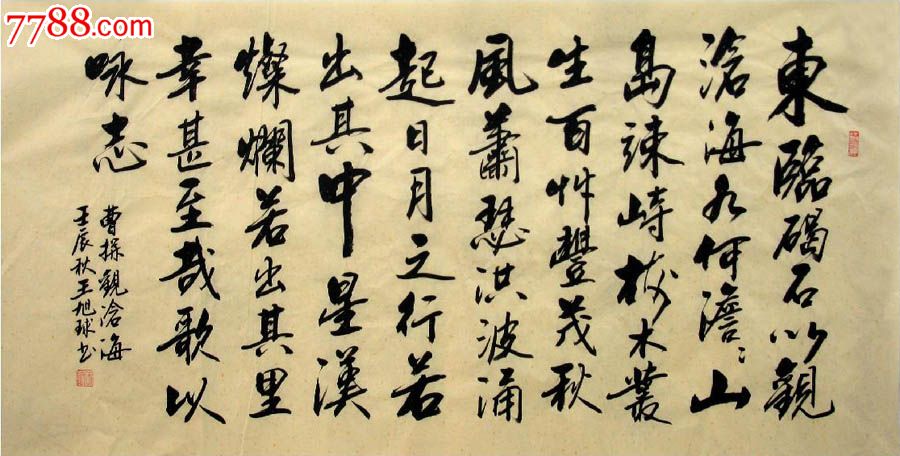 7788.com
東臨碣石以觀
滄海水何澹々山
島竦峙樹木叢
生百艸豐茂秋
風蕭瑟洪波涌
起日月之行若
出其中星漢
燦爛若出其里
幸甚至哉歌以
咏志
曹操觀滄海
壬辰秋王旭球书